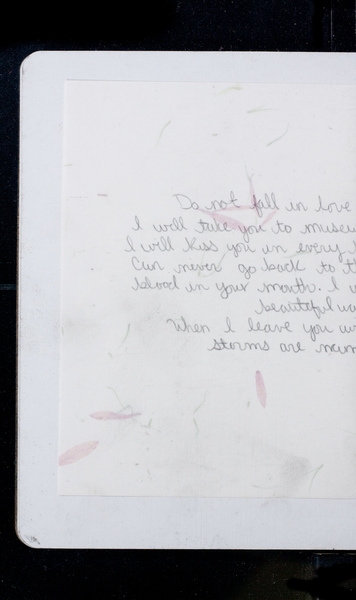 Do not fall in love
I will take you to
I will kiss you in every
Can never go back to
blood in your mouth. I
beautiful
When I leave you
storms are